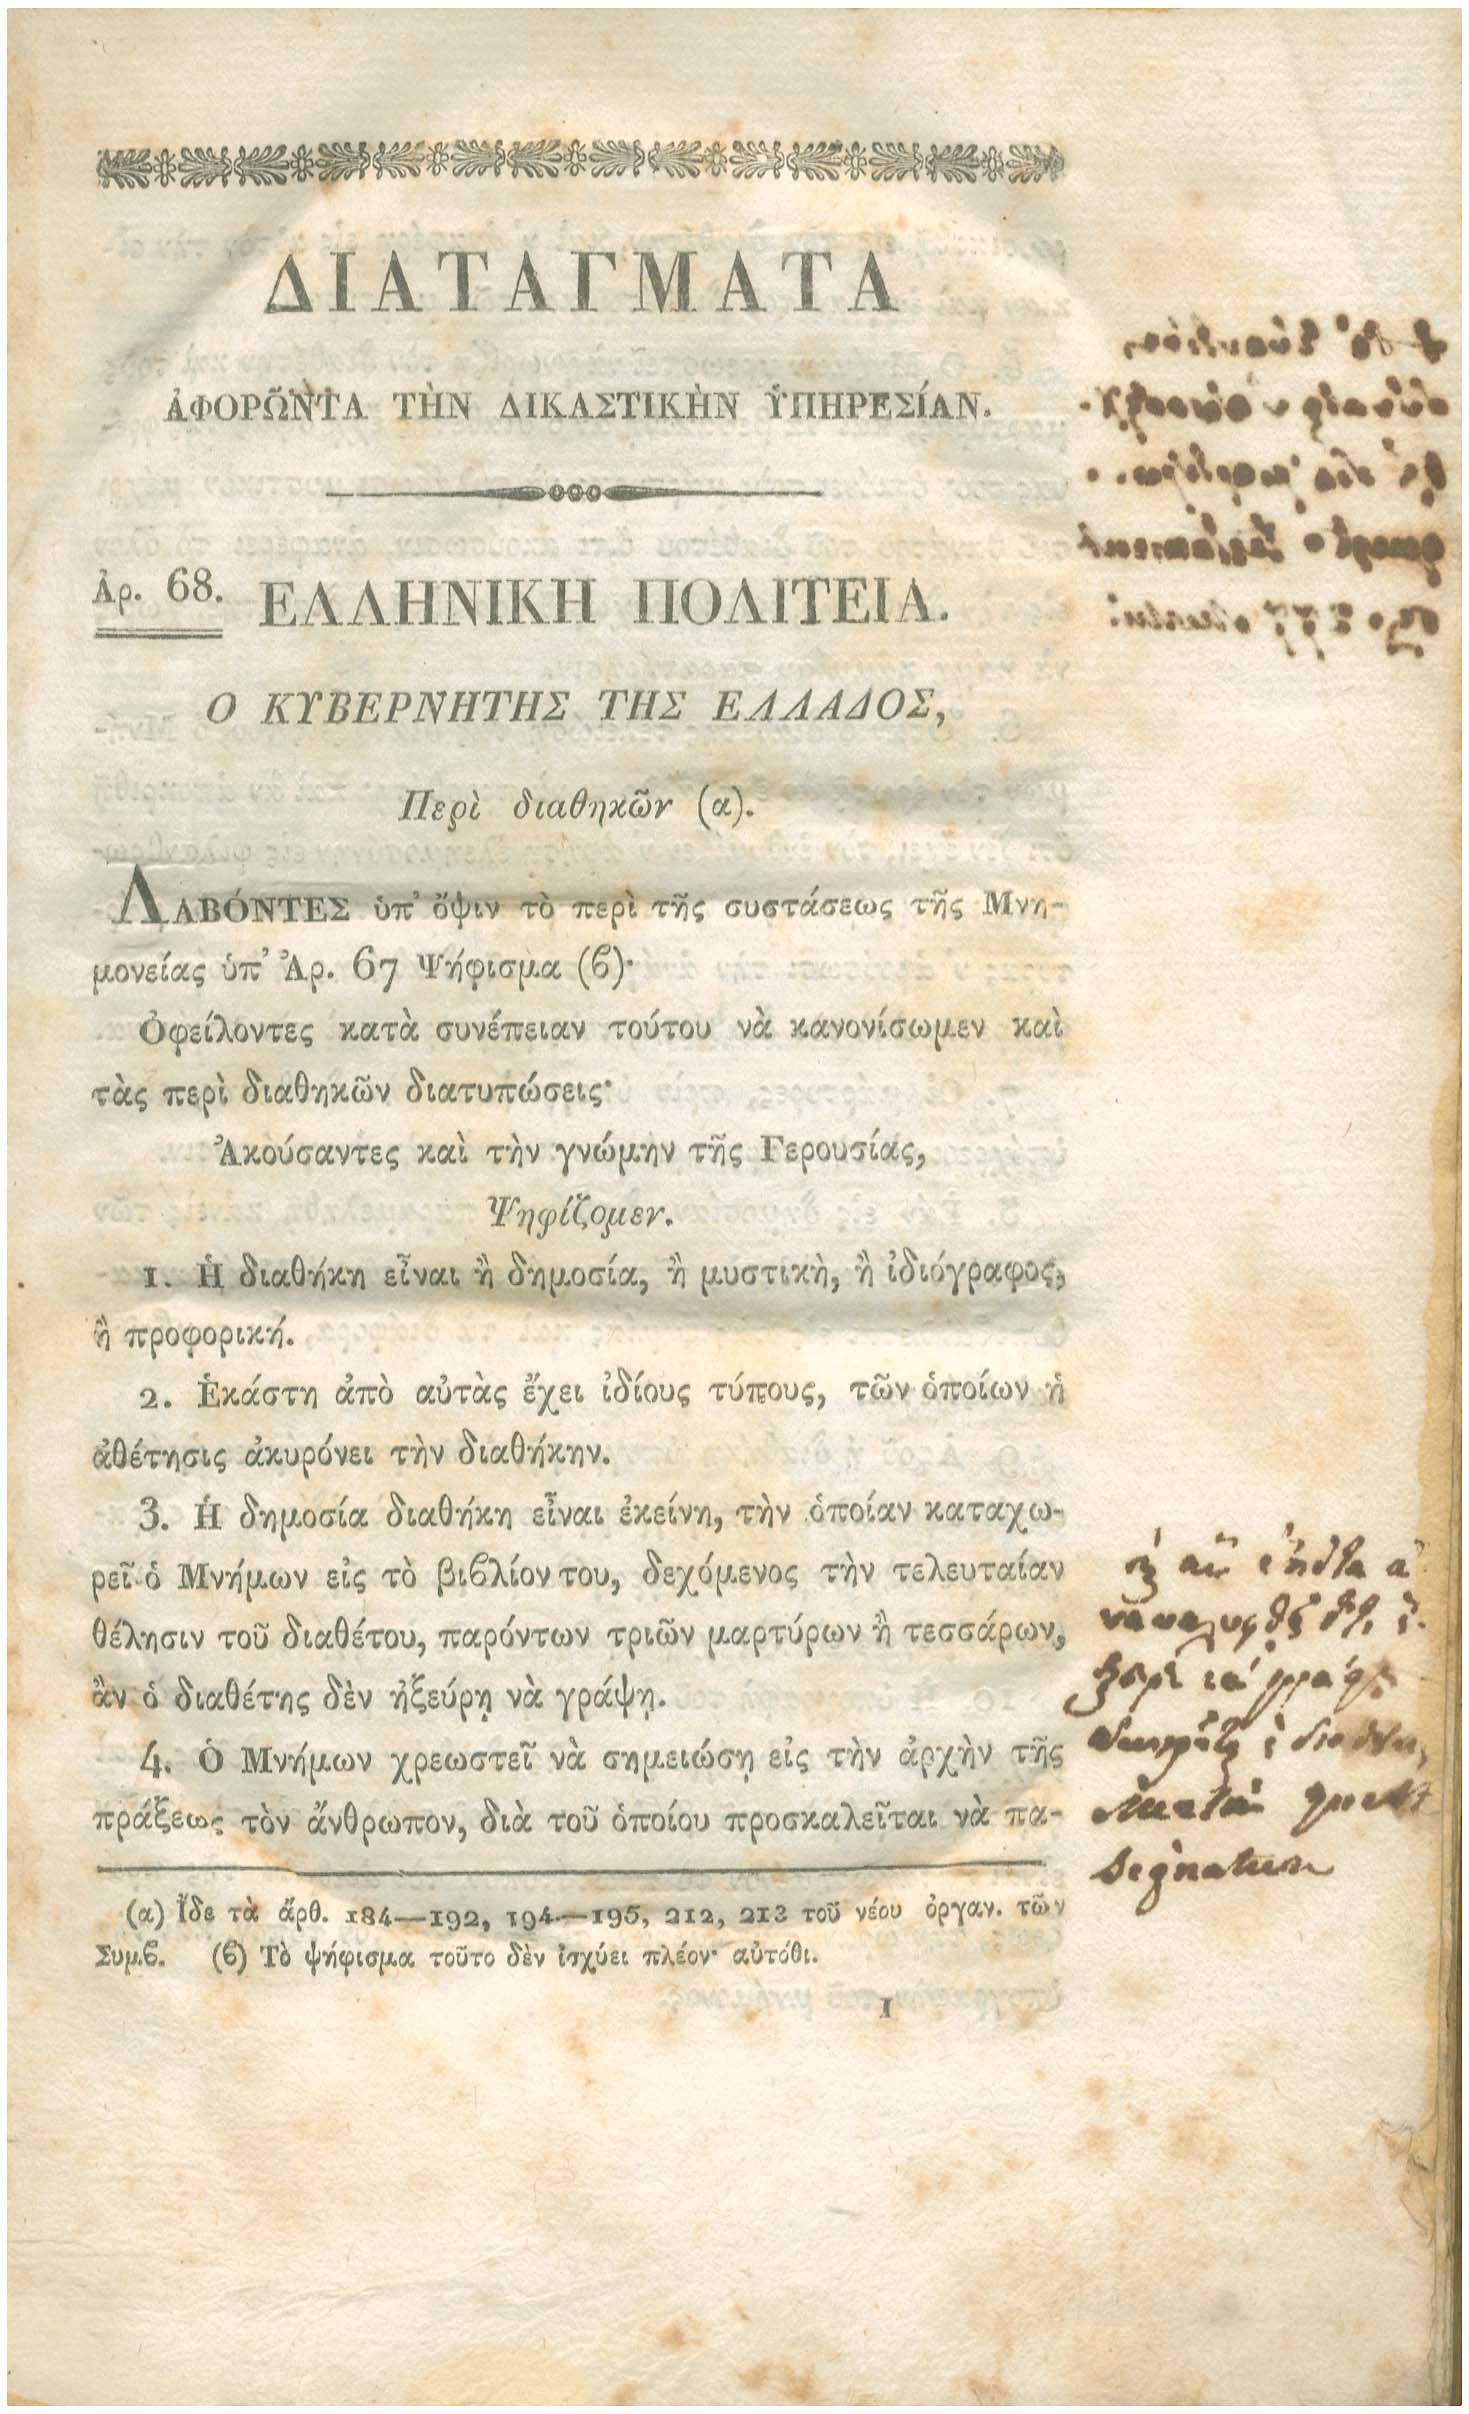 ΔΙΑΤΑΓΜΑΤΑ
ἈΦΟΡΩ͂ΝΤΑ ΤῊΝ ΔΙΚΑΣΤΙΚῊΝ ὙΠΗΡΕΣΊΑΝ.
Ἀρ. 68. ΕΛΛΗΝΙΚΗ ΠΟΛΙΤΕΙΑ.
Ο ΚΥΒΕΡΝΗΤΗΣ ΤΗΣ ΕΛΛΑΔΟΣ,
Περὶ διαθηκῶν (α).
ΛΑΒΌΝΤΕΣ ὑπ' ὄψιν τὸ περὶ τῆς συστάσεως τῆς Μνη-
μονείας ὑπ' Ἀρ. 67 Ψήφισμα (ϐ)·
Ὀφείλοντες κατὰ συνέπειαν τούτου νὰ κανονίσωμεν καὶ
τὰς περὶ διαθηκῶν διατυπώσεις·
Ἀκούσαντες καὶ τὴν γνώμην τῆς Γερουσίας,
Ψηφίζομεν.
1. Ἡ διαθήκη εἶναι ἢ δημοσία, ἢ μυστικὴ, ἢ ἰδιόγραφος,
ἢ προφορική.
2. Ἑκάστη ἀπὸ αὐτὰς ἔχει ἰδίους τύπους, τῶν ὁποίων ἡ
ἀθέτησις ἀκυρόνει τὴν διαθήκην.
3. Ἡ δημοσία διαθήκη εἶναι ἐκείνη, τὴν ὁποίαν καταχω-
ρεῖ ὁ Μνήμων εἰς τὸ βιϐλίον του, δεχόμενος τὴν τελευταίαν
θέλησιν τοῦ διαθέτου, παρόντων τριῶν μαρτύρων ἢ τεσσάρων,
ἂν ὁ διαθέτης δὲν ἠξεύρῃ νὰ γράψῃ.
4. Ὁ Μνήμων χρεωστεῖ νὰ σημειώσῃ εἰς τὴν ἀρχὴν τῆς
πράξεως τὸν ἄνθρωπον, διὰ τοῦ ὁποίου προσκαλεῖται νὰ πα-
(α) Ἴδε τὰ ἄρθ. 184—192, 194—195, 212, 213 τοῦ νέου ὀργαν. τῶν
Συμϐ. (ϐ) Τὸ ψήφισμα τοῦτο δὲν ἰσχύει πλέον· αὐτόθι.
1